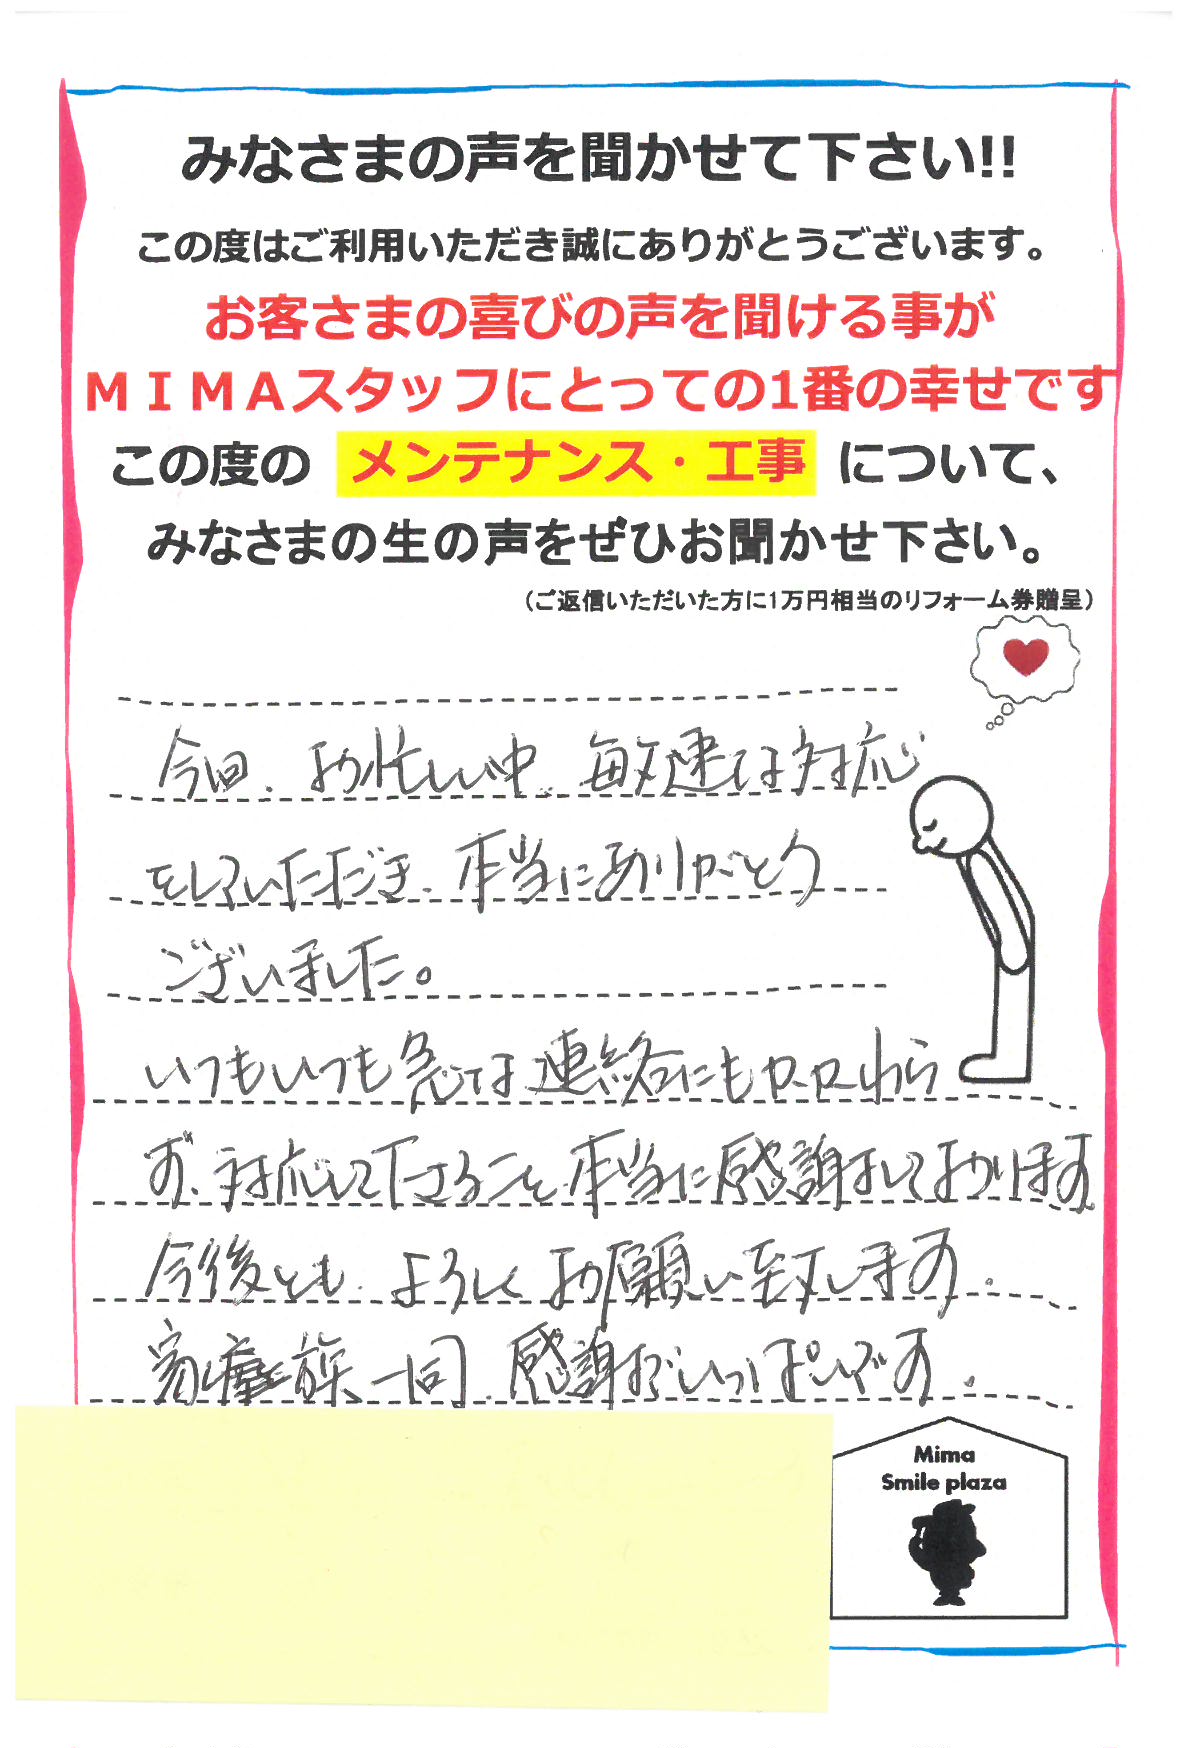 みなさまの声を聞かせて下さい!!
この度はご利用いただき誠にありがとうございます。
お客さまの喜びの声を聞ける事が
ＭＩＭＡスタッフにとっての1番の幸せです
この度の メンテナンス・工事 について、
みなさまの生の声をぜひお聞かせ下さい。
（ご返信いただいた方に1万円相当のリフォーム券贈呈）
今回、お忙しい中、敏速な対応
をしていただき、本当にありがとう
ございました。
いつもいつも急な連絡にもカカわら
ず、対応して下さること、本当に感謝しております
今後とも、よろしくお願い致します。
家族一同、感謝でいっぱいです。
Mima
Smile plaza